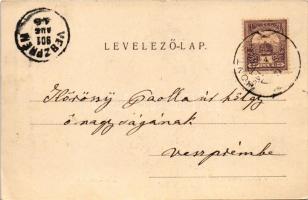 VESZPRÉM
901
AUG
LEVELEZŐ-LAP.
Kőrösy Paolla úr hölgy
ő nagyságának
veszprémbe